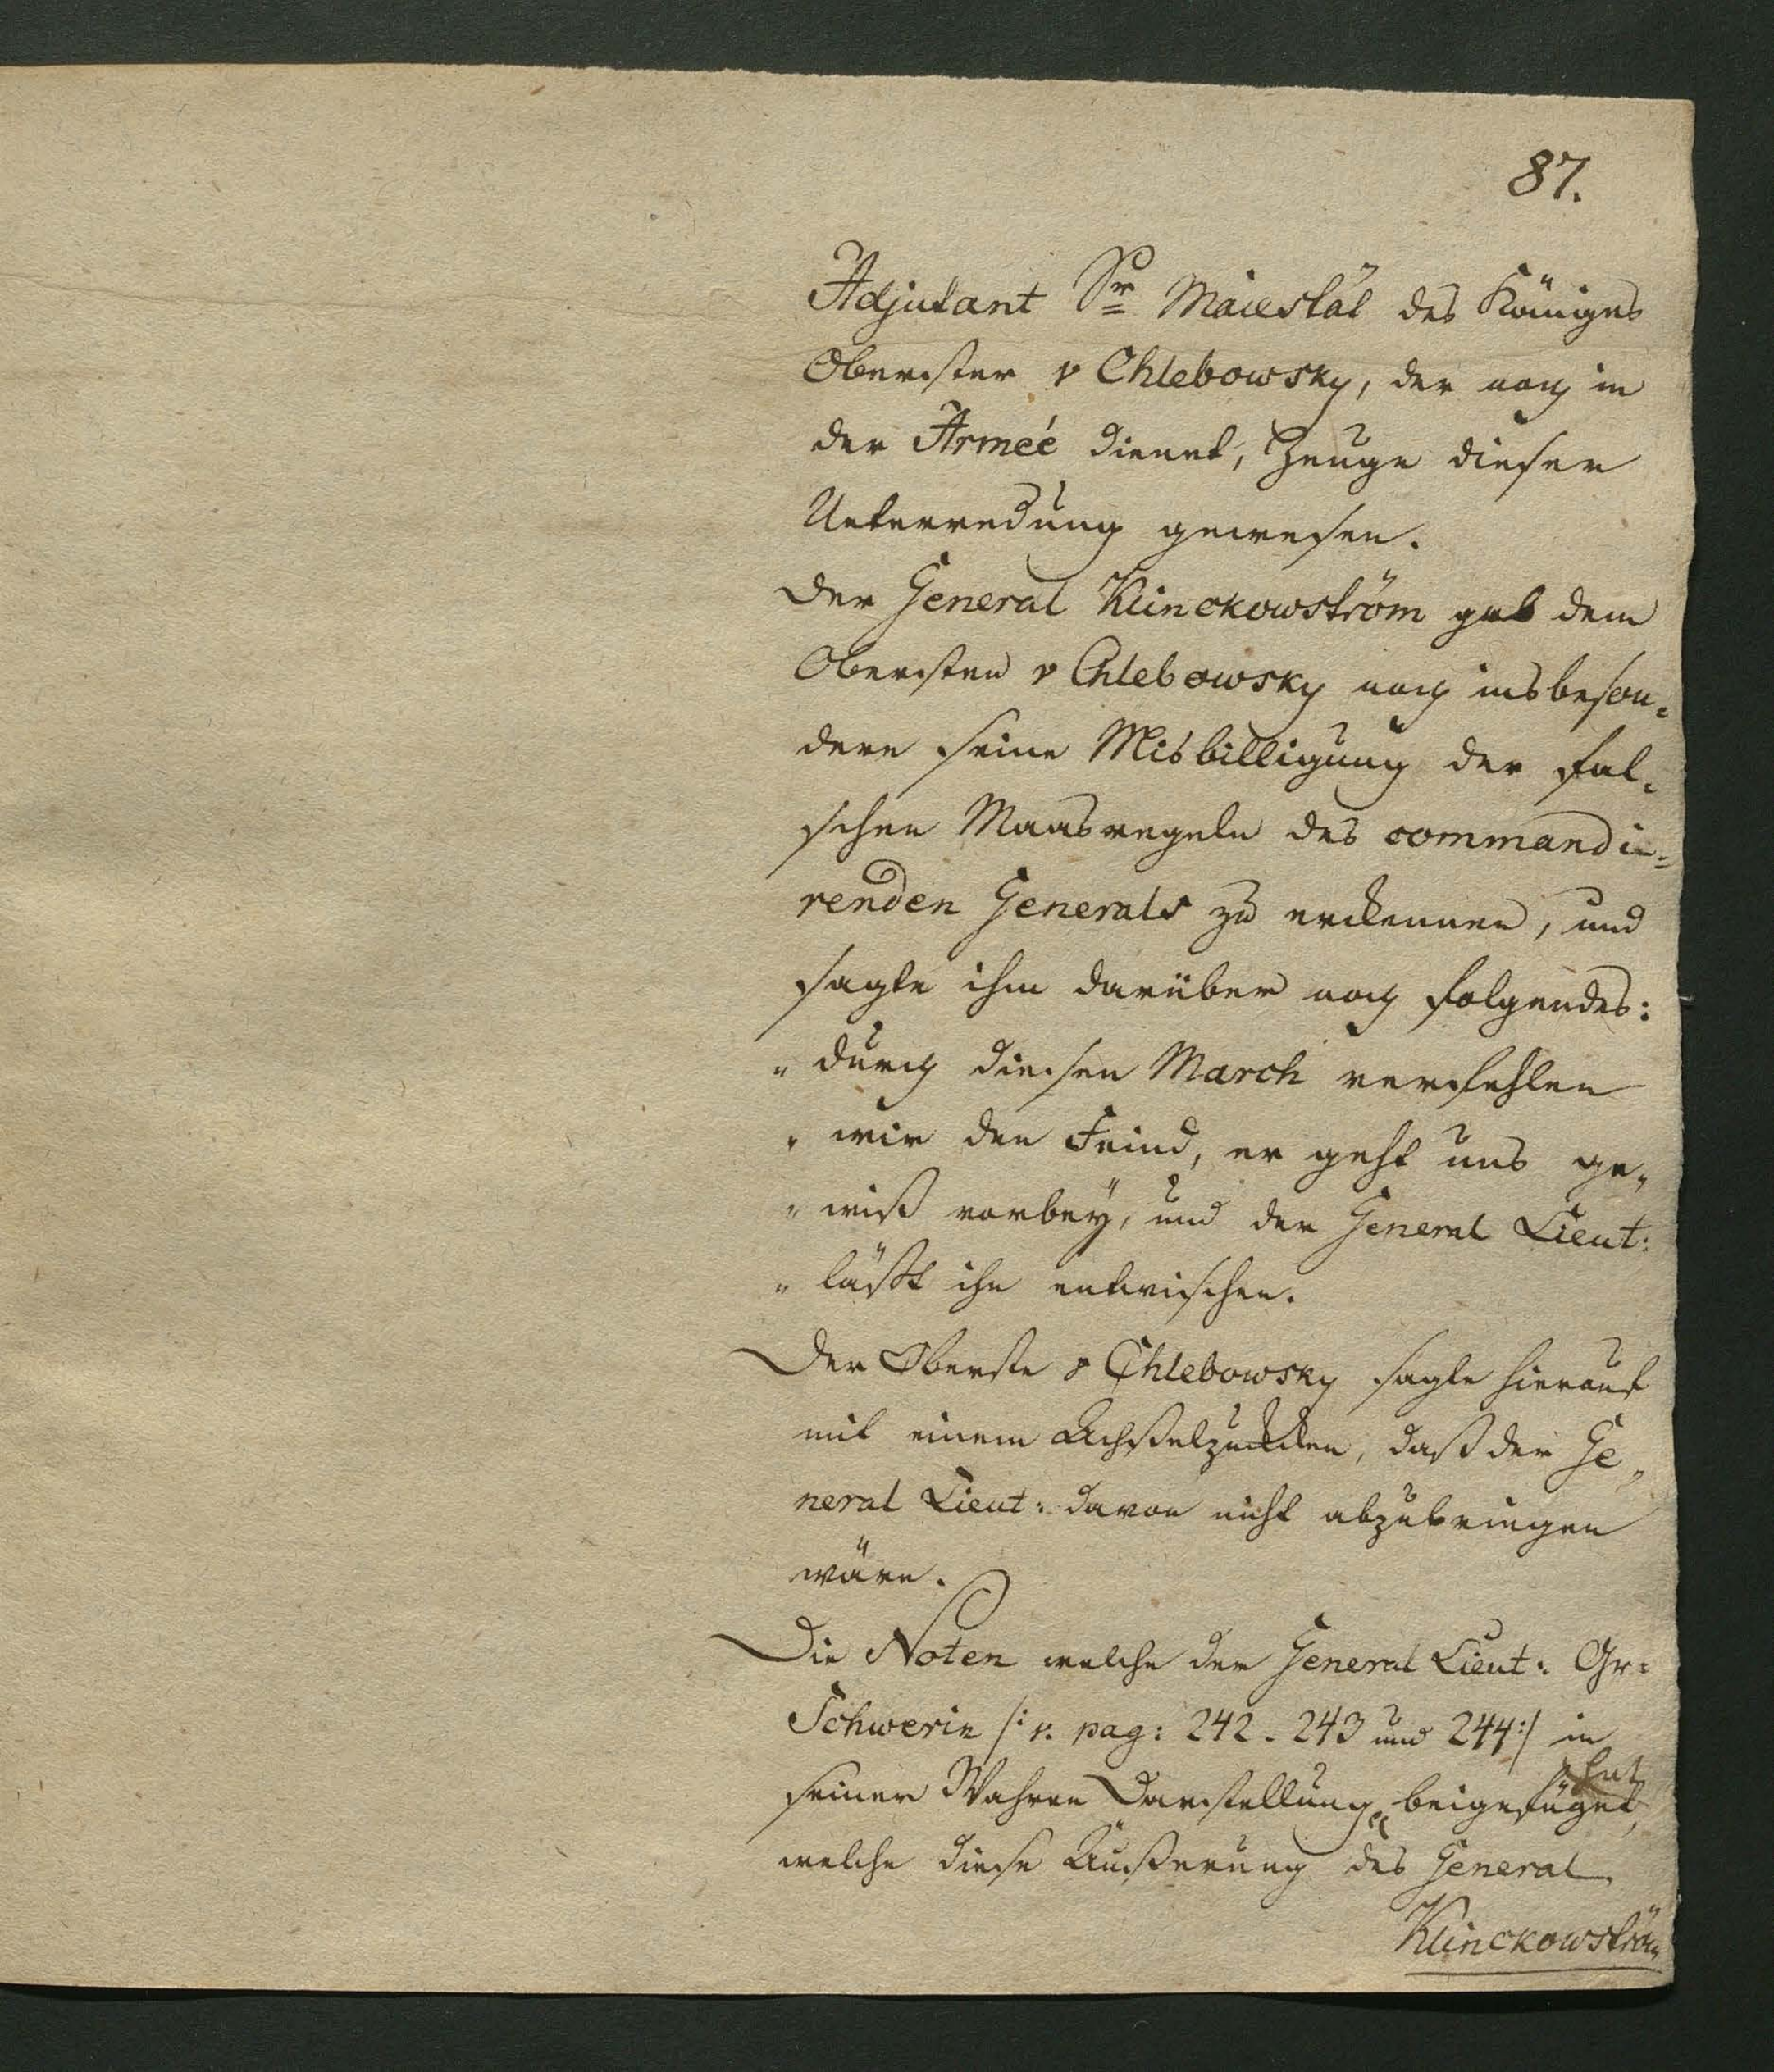 87.
Adjutant Sr Maiestät des Königes
Oberster v Chlebowsky, der noch in
der Armeé dienet, Zeuge dieser
Unterredung gewesen.
Der General Klinckowström gab dem
Obersten v Chlebowsky noch insbeson„
dere seine Misbilligung der fal„
schen Maasregeln des commandi=
renden Generals zu erkennen, und
sagte ihm darüber noch folgendes:
„ durch diesen March verfehlen
„ wir den Feind, er geht uns ge„
„ wiß vorbey, und der General Lieut:
„ läßt ihn entwischen.
Der Oberste v Chlebowsky sagte hierauf
mit einem Achßelzucken, daß der Ge„
neral Lieut: davon nicht abzubringen
wäre.
Die Noten welche der General Lieut: Gr=
Schwerin /: v. pag: 242. 243 und 244 :/ in
seiner Wahren Darstellung beigefüget hat,
welche diese Äußerung des General
Klinckowström